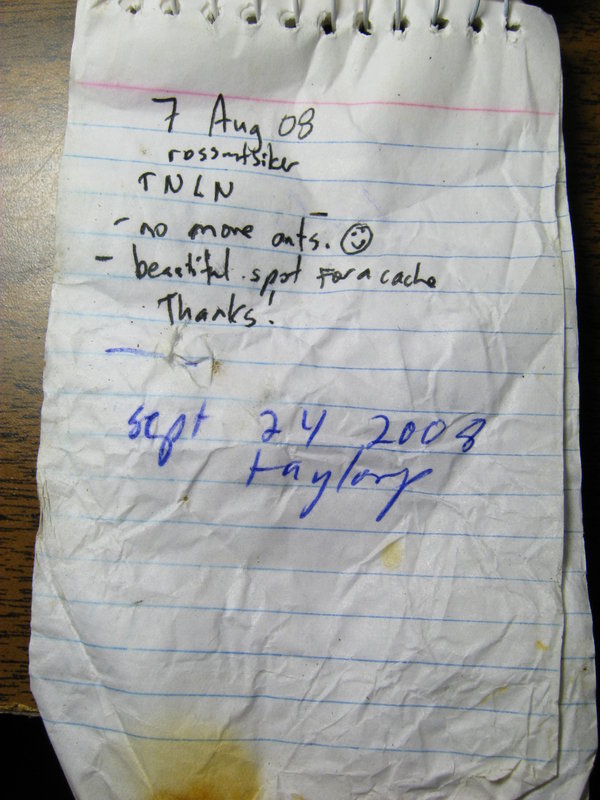 7 Aug 08
TNLN
- no more ants. ☺
- beautiful spot for a cache
Thanks!
sept 24 2008